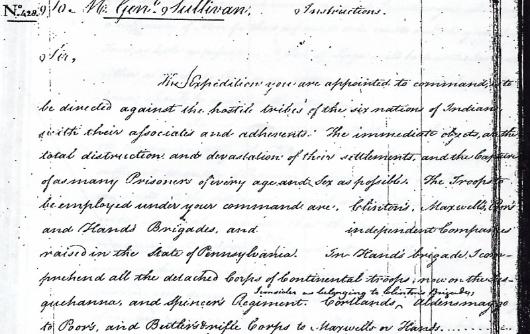 No. 428. To M. Genl. Sullivan. Instructions.
Sir,
The Expedition you are appointed to command, is to
be directed against the hostile tribes of the six nations of Indians
with their associates and adherents. The immediate objects, are the
total distruction and devastation of their settlements, and the Capture
of as many Prisoners of every age and Sex as possible. The Troops to
be employed under your command are, Clinton's, Maxwell's, Poor's
and Hand's Brigades, and independent Companies
raised in the State of Pennsylvania. In Hand's brigade I com-
prehend all the detached Corps of Continental troops, now on the Sus-
consider as belonging to Clinton's Brigade,
quehanna, and Spencer's Regiment. Cortlands, Aldens may go
to Poor's, and Butler's & rifle Corps to Maxwell or Hand's